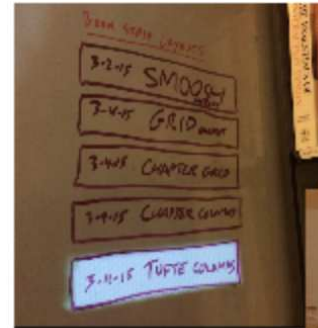 BOOK STORE LAYOUTS
3-2-15 SMOOSH
3-4-15 GRID
3-4-15 CHAPTER GRID
3-9-15 CHAPTER COLUMNS
3-11-15 TUFTE COLUMNS